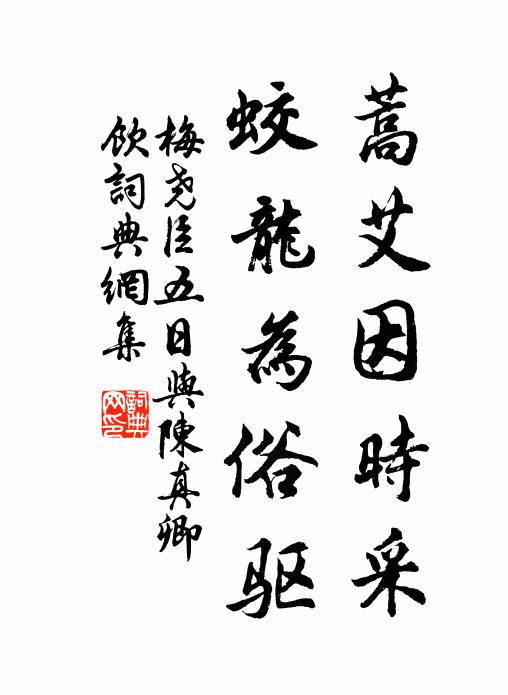 蒿艾因時采
蛟龍為俗驱
梅尧臣五日與陳真卿
飲詞典網集
詞典网印